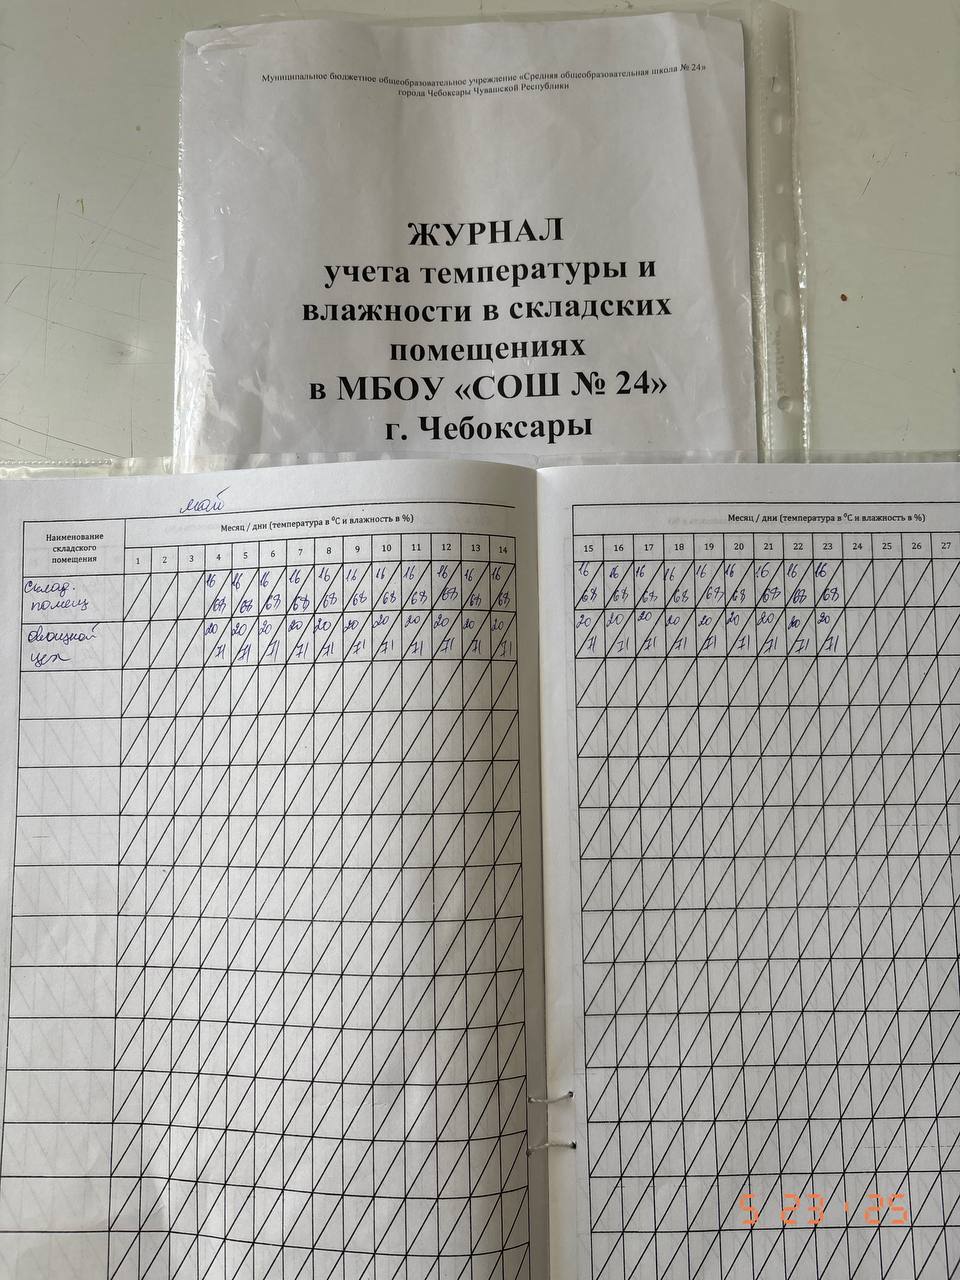 Муниципальное бюджетное общеобразовательное учреждение «Средняя общеобразовательная школа № 24»
города Чебоксары Чувашской Республики
ЖУРНАЛ
учета температуры и
влажности в складских
помещениях
в МБОУ «СОШ № 24»
г. Чебоксары
май
Наименование складского помещения
Месяц / дни (температура в ⁰С и влажность в %)
1 2 3 4 5 6 7 8 9 10 11 12 13 14
Склад.
помещ
16 16 16 16 16 16 16 16 16 16 16
68 68 68 68 68 68 68 68 68 68 68
Овощной
цех
20 20 20 20 20 20 20 20 20 20 20
71 71 71 71 71 71 71 71 71 71 71
Месяц / дни (температура в ⁰С и влажность в %)
15 16 17 18 19 20 21 22 23 24 25 26 27
16 16 16 16 16 16 16 16 16
68 68 68 68 68 68 68 68 68
20 20 20 20 20 20 20 20 20
71 71 71 71 71 71 71 71 71
5 23 '25